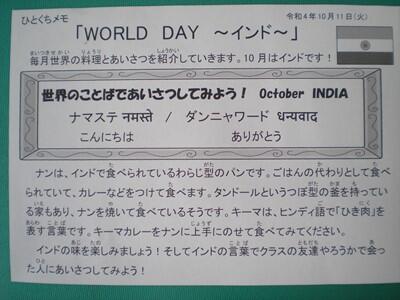 ひとくちメモ
令和4年10月11日(火)
「WORLD DAY ～インド～」
毎月世界の料理とあいさつを紹介していきます。10月はインドです！
世界のことばであいさつしてみよう！ October INDIA
ナマステ नमस्ते / ダンニャワード धन्यवाद
こんにちは ありがとう
ナンは、インドで食べられているわらじ型のパンです。ごはんの代わりとして食べ
られていて、カレーなどをつけて食べます。タンドールというつぼ型の釜を持ってい
る家もあり、ナンを焼いて食べているそうです。キーマは、ヒンディ語で「ひき肉」を
表す言葉です。キーマカレーをナンに上手にのせて食べてみてください。
インドの味を楽しみましょう！そしてインドの言葉でクラスの友達やろうかで会っ
た人にあいさつしてみよう！